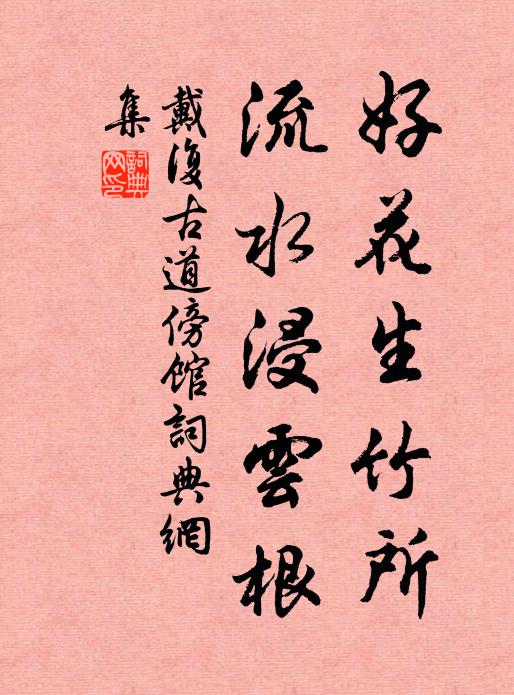 好花生竹所
流水浸雲根
戴復古道傍館詞典網
集
詞典网印